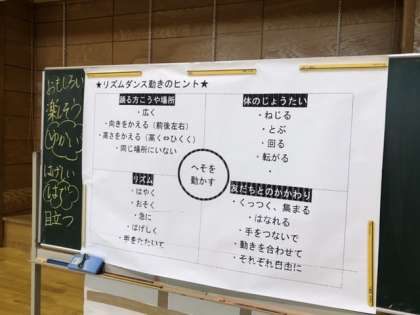 おもしろい
楽しそう
ゆかい
はげしい
はずむ
目立つ
★リズムダンス動きのヒント★
踊る方こうや場所
・広く
・向きをかえる（前後左右）
・高さをかえる（高く⇔ひくく）
・同じ場所にいない
体のじょうたい
・ねじる
・とぶ
・回る
・転がる
・
へそを
動かす
リズム
・はやく
・おそく
・急に
・はげしく
・手をたたいて
友だちとのかかわり
・くっつく、集まる
・はなれる
・手をつないで
・動きを合わせて
・それぞれ自由に